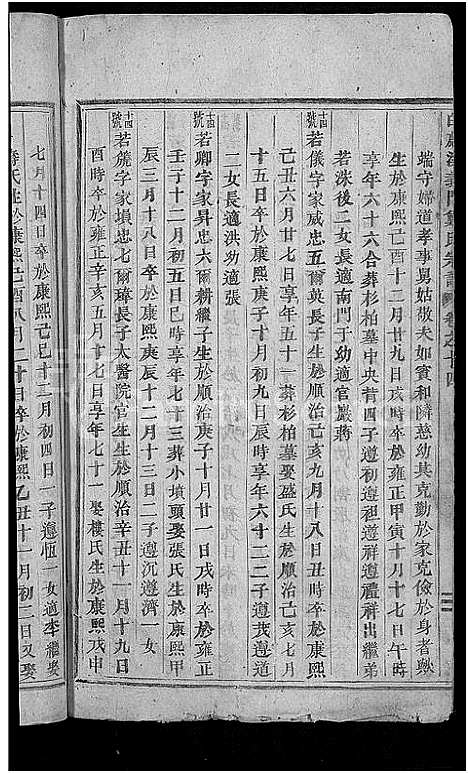 白麟溪義門鄭氏宗譜 卷之十四
端守婦道孝事舅姑敬夫如賓和隣慈幼其克勤於家克儉於身者歟
生於康熙己酉十二月廿九日亥時卒於雍正甲寅十月十七日午時
享年六十六合葬杉柏墓中央昔四子遵初遵祖遵祥遵禮祥出繼弟
若洙後二女長適南門于幼適官巖蔣
十四號 若儀字家威忠五爾英長子生於順治己亥九月十八日丑時卒於康熙
己丑六月初七日享年五十一葬杉柏墓娶盛氏生於順治己亥七月
十五日卒於康熙庚子年九月初九日辰時享年六十二二子遵茂遵道
二女長適洪幼適張
十四號 若卿字家昇忠六爾耕繼子生於順治庚子十月廿一日戌時卒於雍正
壬子十二月初四日時享年七十三葬小墳頭娶張氏生於康熙甲
辰三月十八日卒於康熙庚辰十二月十三日二子遵沉遵濟一女
十四號 若簏字家塤忠七爾瑋長子太醫院官生生於順治辛丑十一月十九日
酉時卒於雍正辛亥五月十七日享年七十一娶樓氏生於康熙戊申
七月十四日卒於康熙己巳十二月初四日一子遵恆一女適李繼娶
氏生於康熙己酉八月二十日卒於康熙乙丑十一月初二日又娶